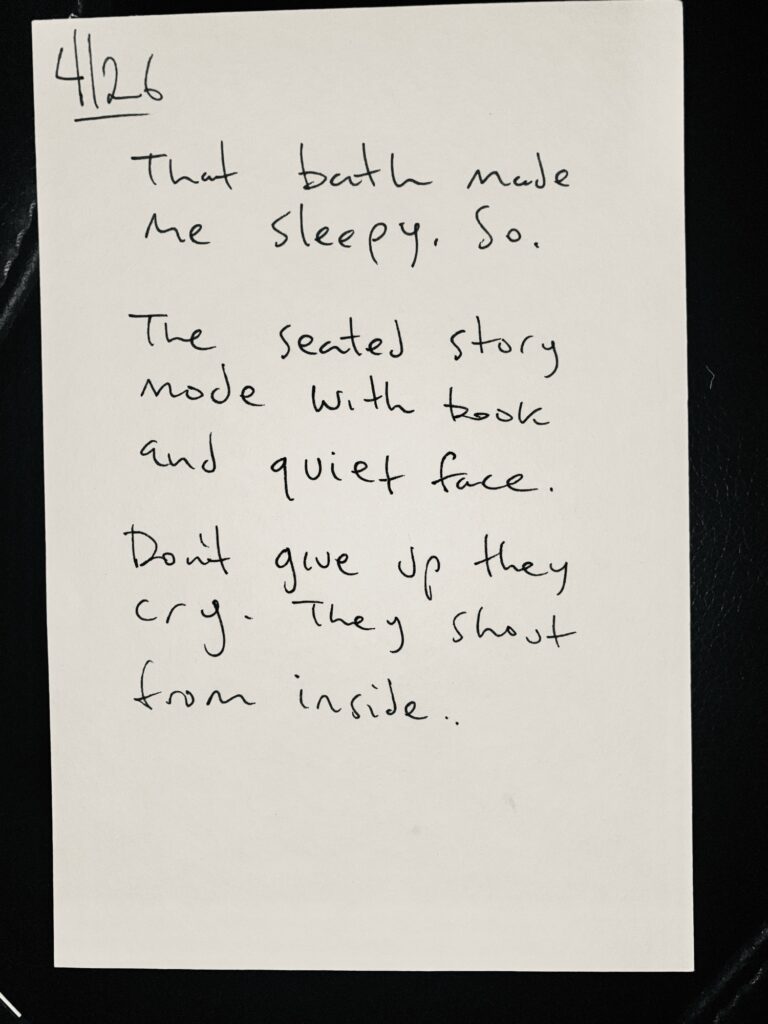 4/26
That bath made
me sleepy. So.
The seated story
mode with book
and quiet face.
Don't give up they
cry. They shout
from inside..